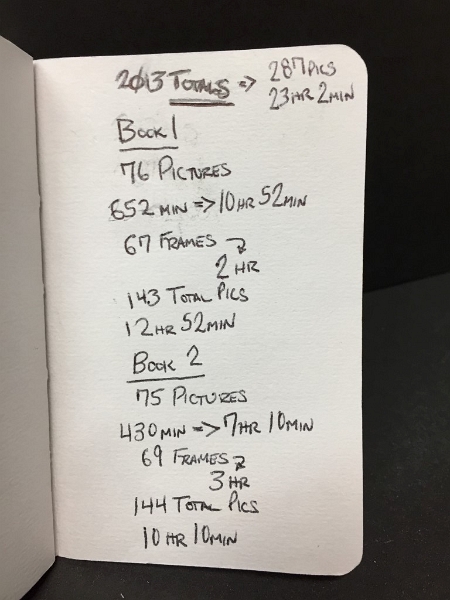 2013 TOTALS => 287 PICS
23 HR 2 MIN
BOOK 1
76 PICTURES
652 MIN => 10 HR 52 MIN
67 FRAMES
2 HR
143 TOTAL PICS
12 HR 52 MIN
BOOK 2
75 PICTURES
430 MIN => 7 HR 10 MIN
69 FRAMES
3 HR
144 TOTAL PICS
10 HR 10 MIN